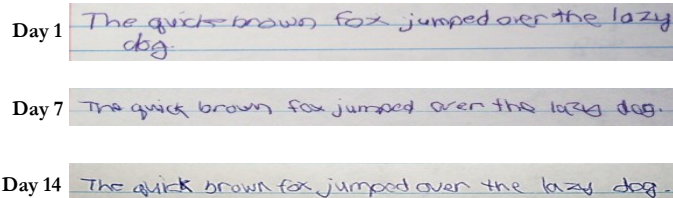 Day 1 The quick brown fox jumped over the lazy
dog.
Day 7 The quick brown fox jumped over the lazy dog.
Day 14 The quick brown fox jumped over the lazy dog.